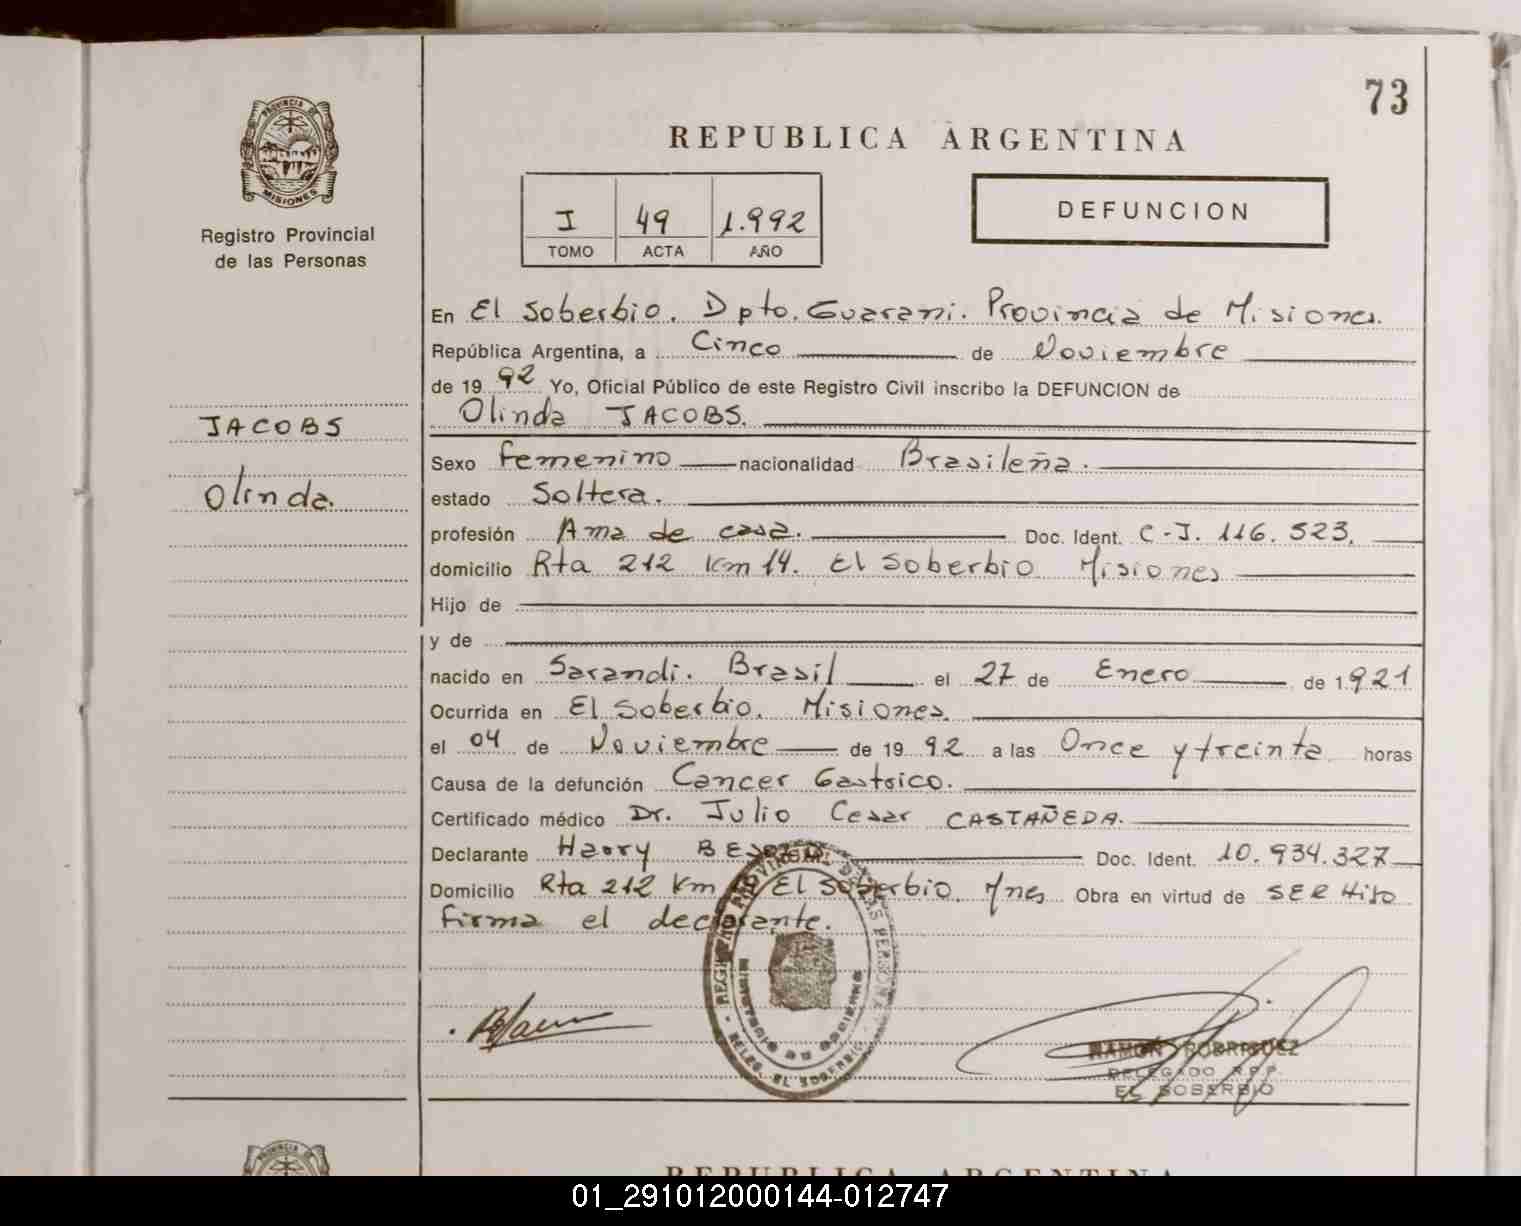 73
REPUBLICA ARGENTINA
PROVINCIA DE
MISIONES
Registro Provincial
de las Personas
I 49 1.992
TOMO ACTA AÑO
DEFUNCION
En El Soberbio. Dpto. Guarani. Provincia de Misiones.
República Argentina, a Cinco de Noviembre
de 19 92 Yo, Oficial Público de este Registro Civil inscribo la DEFUNCION de
Olinda JACOBS.
JACOBS
Olinda.
Sexo Femenino nacionalidad Brasileña.
estado Soltera.
profesión Ama de casa. Doc. Ident. C-I. 116.523.
domicilio Rta 212 Km 14. El Soberbio Misiones
Hijo de
y de
nacido en Sarandi. Brasil el 27 de Enero de 1.921
Ocurrida en El Soberbio. Misiones.
el 04 de Noviembre de 19 92 a las Once y treinta horas
Causa de la defunción Cancer Gastrico.
Certificado médico Dr. Julio Cesar CASTAÑEDA.
Declarante Harry Doc. Ident. 10.934.327
Domicilio Rta 212 Km El Soberbio. Mnes Obra en virtud de SER HIJO
Firma el declarante.
REGISTRO PROVINCIAL DE LAS PERSONAS
MINISTERIO DE GOBIERNO
DELEG. EL SOBERBIO
RAMON RODRIGUEZ
DELEGADO R.P.P.
EL SOBERBIO
PROVINCIA DE
REPUBLICA ARGENTINA
01_291012000144-012747